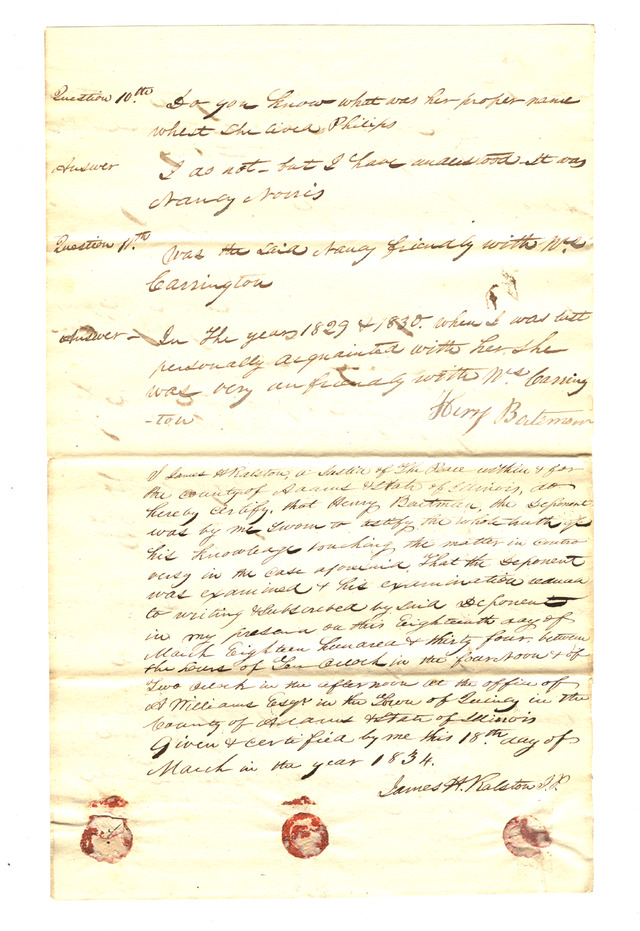 Question 10.th Do you know what was her proper name
where she lived Philips
Answer I do not - but I have understood it was
Nancy Norris
Question 11.th Was the said Nancy friendly with Wm
Carrington
Answer - In the years 1829 & 1830. when I was last
personally acquainted with her. she
was very unfriendly with Wm Carring
-ton
Henry Bateman
I James H Ralston, a Justice of the Peace within & for
the county of Adams & State of Illinois, do
hereby certify, that Henry Baitman, the Deponent
was by me sworn to testify the whole truth of
his knowledge touching the matter in contro
versy in the case aforesaid. That the Deponent
was examined & his examination reduced
to writing & subscribed by said Deponent
in my presence on this Eighteenth day of
March Eighteen hundred & thirty four. between
the hours of Ten Oclock in the forenoon & of
Two Oclock in the afternoon at the office of
A Williams Esqr in the Town of Quincy in the
County of Adams & State of Illinois
Given & certified by me this 18.th day of
March in the year 1834.
James H. Ralston J.P.